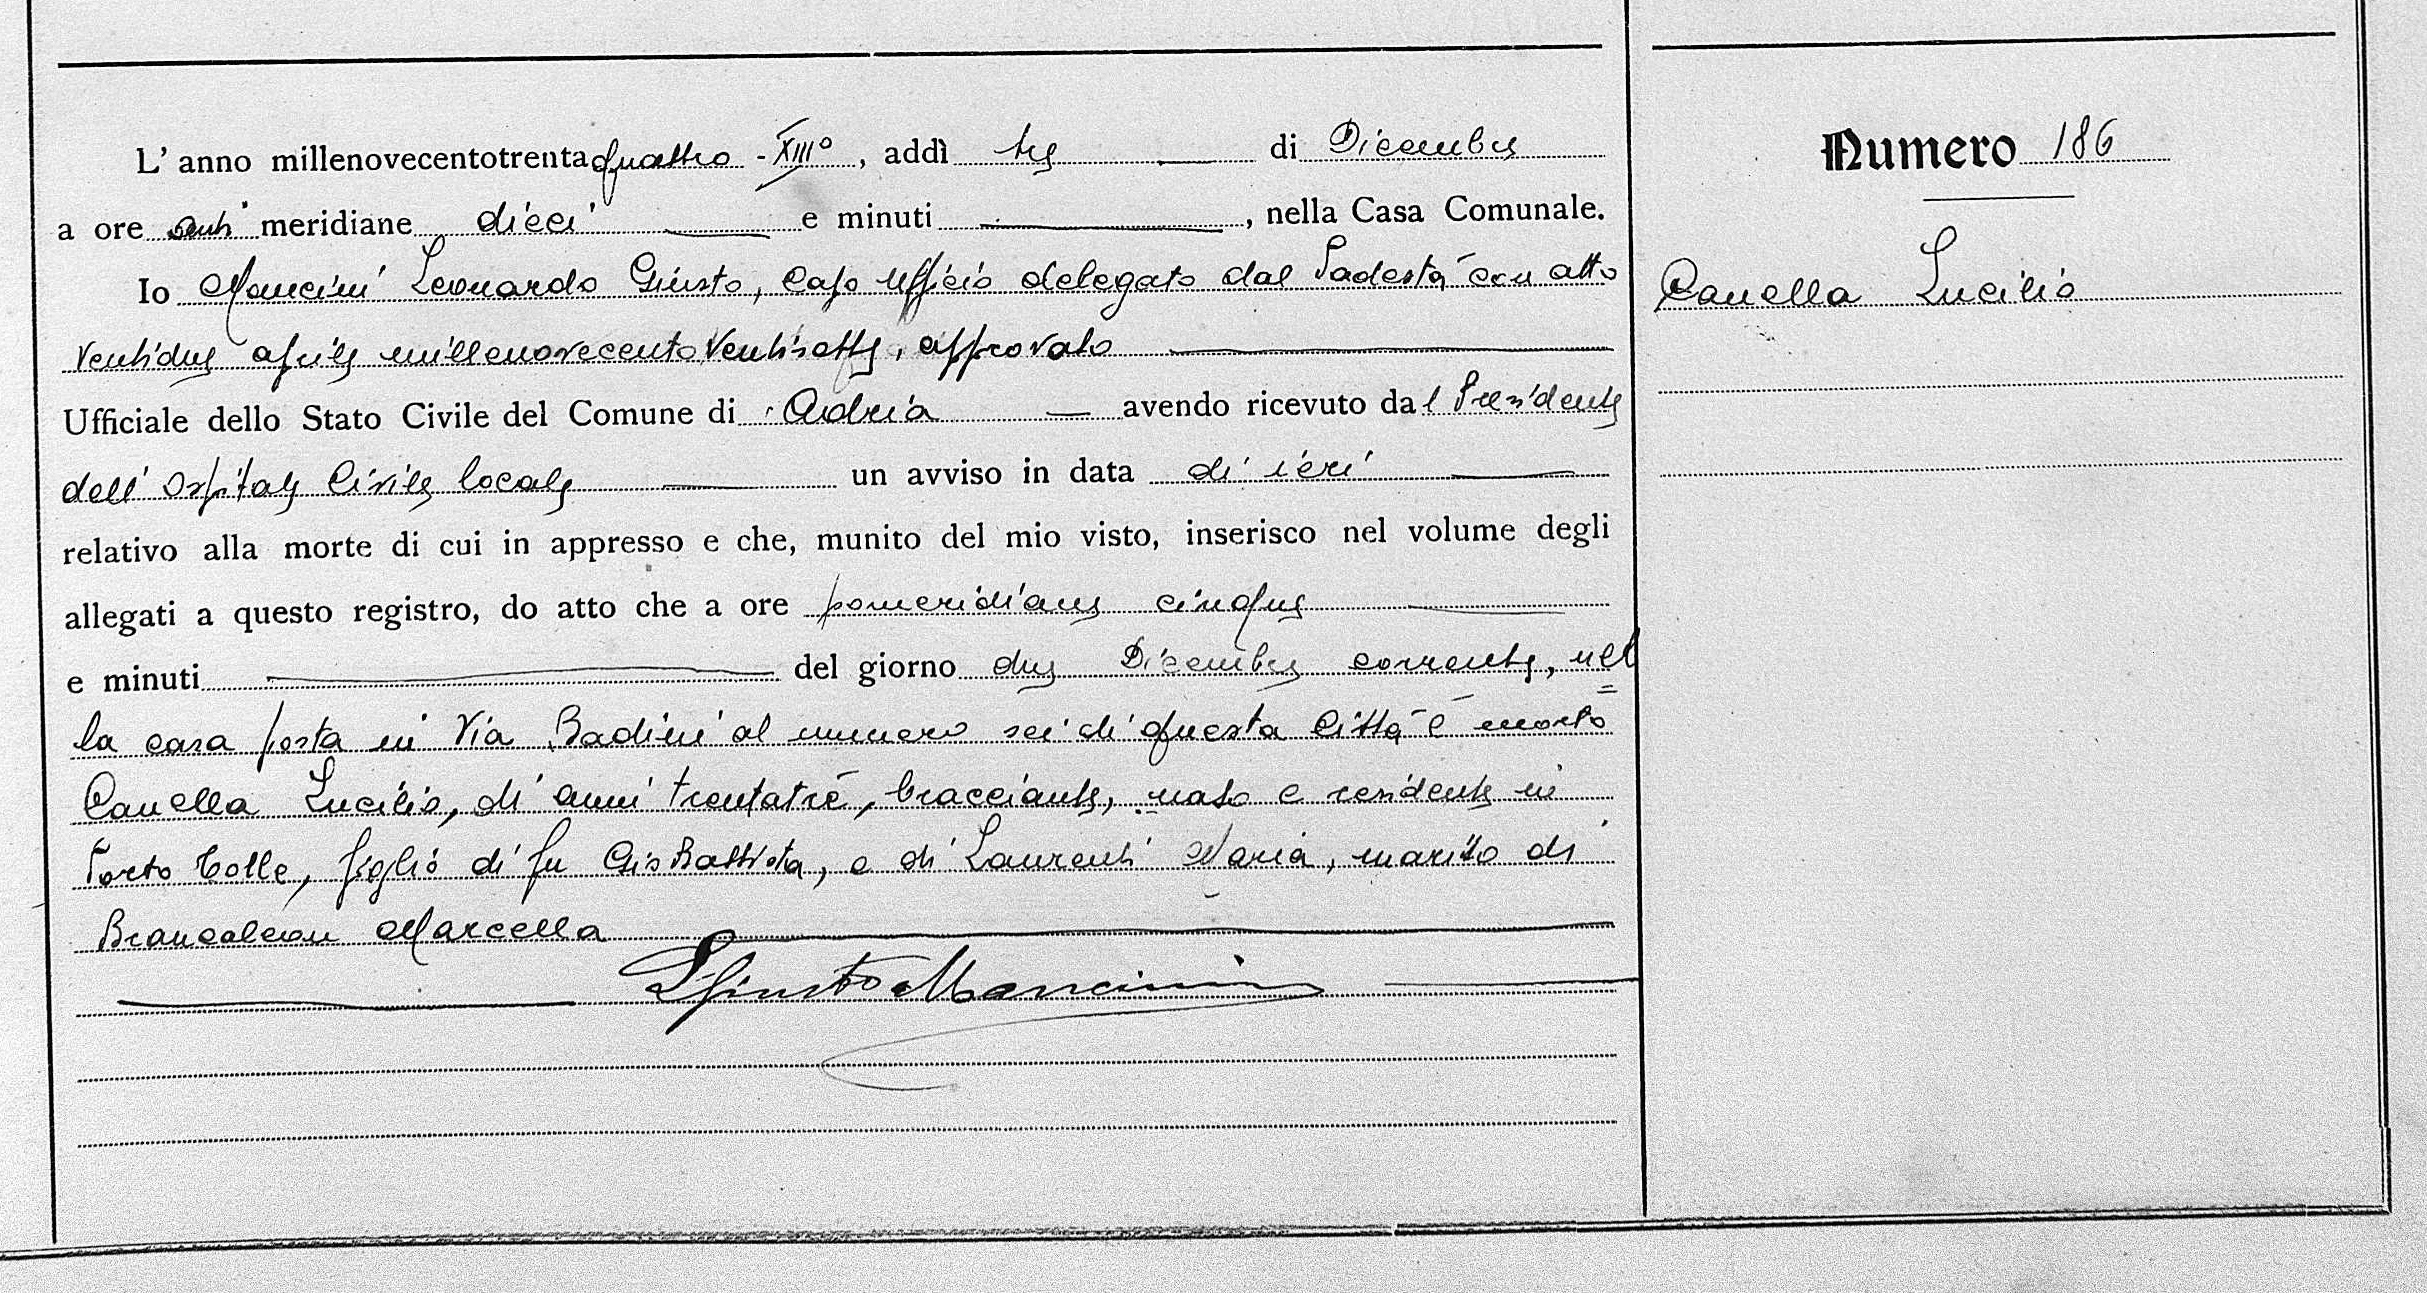 L' anno millenovecentotrentaquattro - XIII°, addì tre di Dicembre
a ore anti meridiane dieci e minuti, nella Casa Comunale.
Io Mancini Leonardo Giusto, Capo Ufficio delegato dal Podestà con atto
ventidue aprile millenovecentoventisette, approvato
Ufficiale dello Stato Civile del Comune di Adria avendo ricevuto dal Presidente
dell'Ospitale Civile locale un avviso in data di ieri
relativo alla morte di cui in appresso e che, munito del mio visto, inserisco nel volume degli
allegati a questo registro, do atto che a ore pomeridiane cinque
e minuti del giorno due Dicembre corrente, nel
la casa posta in Via Badini al numero sei di questa Città è morto
Canella Lucilio, di anni trentatrè, bracciante, nato e residente in
Porto Tolle, figlio di fu Gio Battista, e di Laurenti Maria, marito di
Brancaleon Marcella
L Giusto Mancini
Numero 186
Canella Lucilio